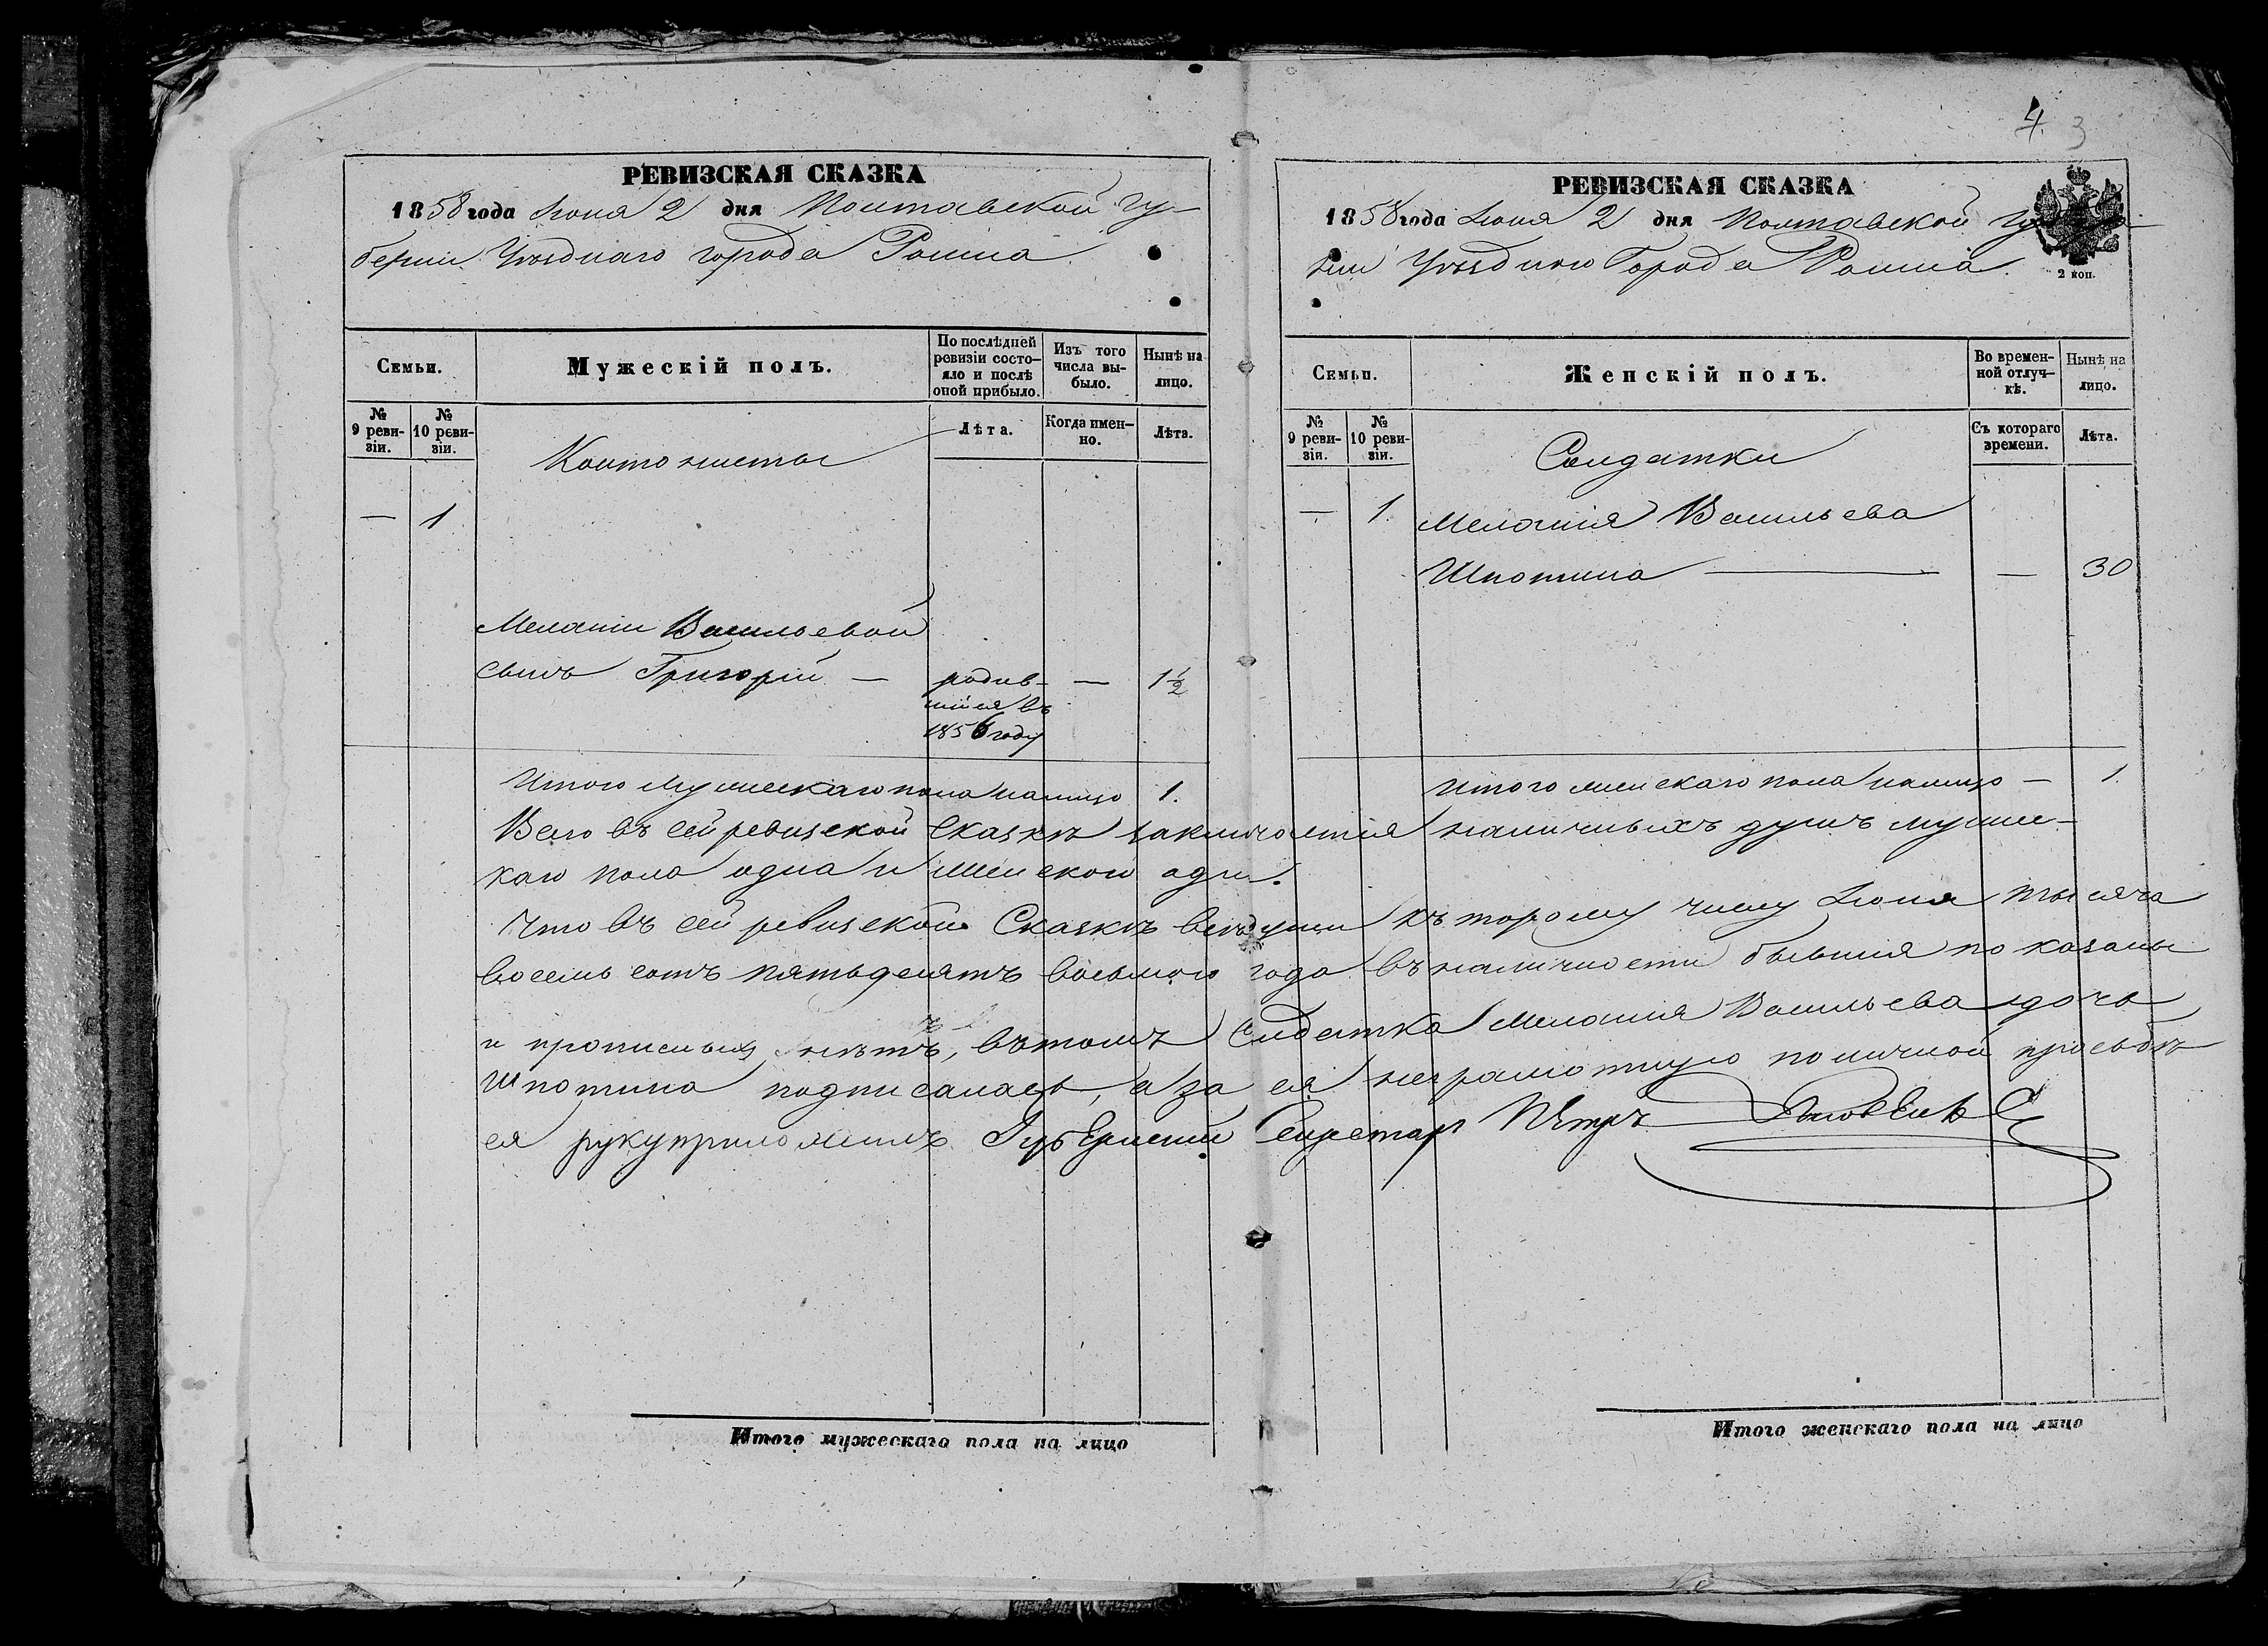 4. 3
РЕВИЗСКАЯ СКАЗКА
1858 года Іюня 2 дня Полтавской Гу-
берніи Уѣзднаго города Ромна
Семьи.
Мужескій полъ.
По послѣдней ревизіи состо-яло и послѣ оной прибыло.
Изъ того числа вы-было.
Нынѣ на лицо.
№ 9 реви-зіи.
№ 10 реви-зіи.
Лѣта.
Когда имен-но.
Лѣта.
Кантонисты
— 1
Меланіи Васильевой
сынъ Григорій — родив- — 1½
шійся въ
1856 году
Итого Мужескаго пола налицо 1.
РЕВИЗСКАЯ СКАЗКА
1858 года Іюня 2 дня Полтавской Губер-
ніи Уѣзднаго Города Ромна.
2 коп.
Семьи.
Женскій полъ.
Во времен-ной отлуч-кѣ.
Нынѣ на лицо.
№ 9 реви-зіи.
№ 10 реви-зіи.
Съ котораго времени.
Лѣта.
Солдатки
— 1. Меланія Васильева
Шпотина — — 30
Итого женскаго пола налицо — 1.
Всего въ сей ревизской Сказкѣ заключается наличныхъ душъ мужес-
каго пола одна и Женского одна.
Что въ сей ревизской Сказкѣ все души къ второму числу Іюня тысяча
восемь сотъ пятьдесятъ восьмого года въ наличности бывшія показаны
и прописныхъ нѣтъ, въ томъ Солдатка Меланія Васильева дочь
Шпотина подписалась, а за ея неграмотную по личной просьбѣ
ея руку приложилъ Губернский Секретарь Петръ
Итого мужескаго пола на лицо
Итого женскаго пола на лицо